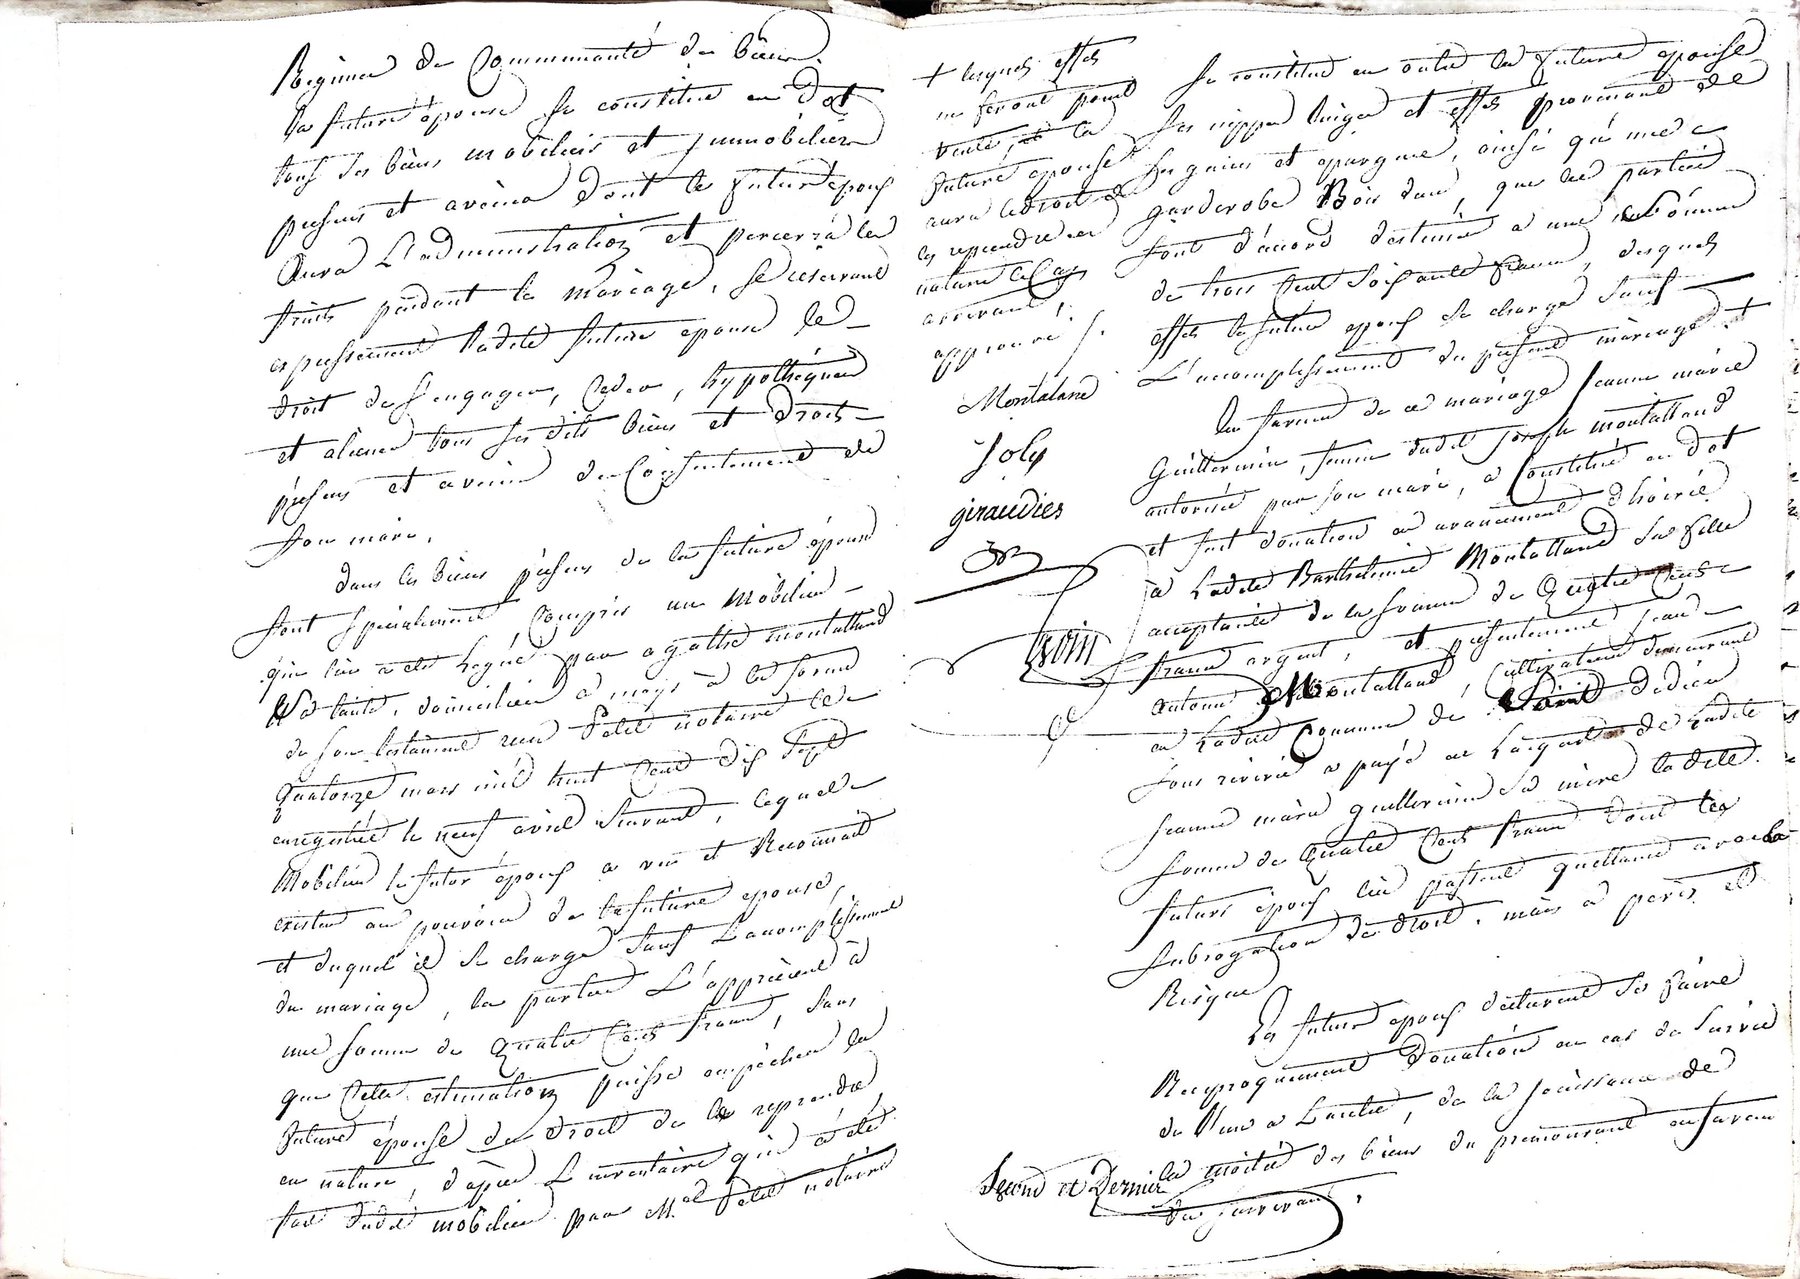 Régime de Communauté de biens.
La future épouse se constitue en dot
tous ses biens mobiliers et immobiliers
présens et avenir dont le futur époux
aura L'administration et percevra les
fruits pendant le mariage, se réservant
expressement ladite future epouse le
droit de s'engager, ceder, hypothéquer
et aliener tous ses dits biens et droits
présens et avenir du Consentement de
son mari.
dans les biens présens de la future épouse
sont specialement Compris un Mobilier
qui lui a été Legué par agathe montalland
sa tante, domiciliée à mays à la forme
de son testament reçu Petit notaire le
quatorze mars mil huit Cent dix sept
enregistré le neuf avril suivant, lequel
Mobilier le futur époux a vu et Reconnait
exister au pouvoir de la future epouse,
et duquel il se charge sauf Lacomplissement
du mariage, les parties L'apprécient à
une somme de quatre Cens francs, sans
que Cette estimation puisse empècher la
future épouse du droit de le reprendre
en nature, d'après L'inventaire qui a été
fait dudit mobilier par Me Petit notaire
+ lesquels effets
ne seront point
vente, et la
future epouse
aura le droit de
les reprendre en
nature le Cas
arrivant,
approuvé /.
Montaland
joly
giraudier
Se constitue en outre la future epouse
ses nippes linges et effets provenant de
ses gains et epargnes, ainsi qu'une
garderobe Bois dur, que les parties
sont d'acord d'estimer à une somme
de trois Cent soixante francs, desquels
effets le futur epoux se charge sauf
L'acomplissement du présent mariage +
En faveur de ce mariage Jeanne marie
Guillermin, femme dudit joseph montalland
autorisée par son mari, a Constitué en dot
et fait donation en avancement d'hoirie
à Ladite Barthelemie Montalland sa fille
acceptante de la somme de quatre Cens
francs argent, et présentement jean
antoine Montalland, Cultivateur demeurant
en Ladite Commune de Saint didier
sous riverie a payé en Lacquit de Ladite
jeanne marie guillermin sa mère ladite
somme de quatre Cens francs dont les
futurs époux lui passent quittance avec la
subrogation de droit. mais à périls et
Risques
Les futurs epoux déclarent se faire
Reciproquement Donation en cas de survie
de l'un a Lautre, de la jouissance de
la moitié des biens du premourant en faveur
du survivant.
Second et Dernier